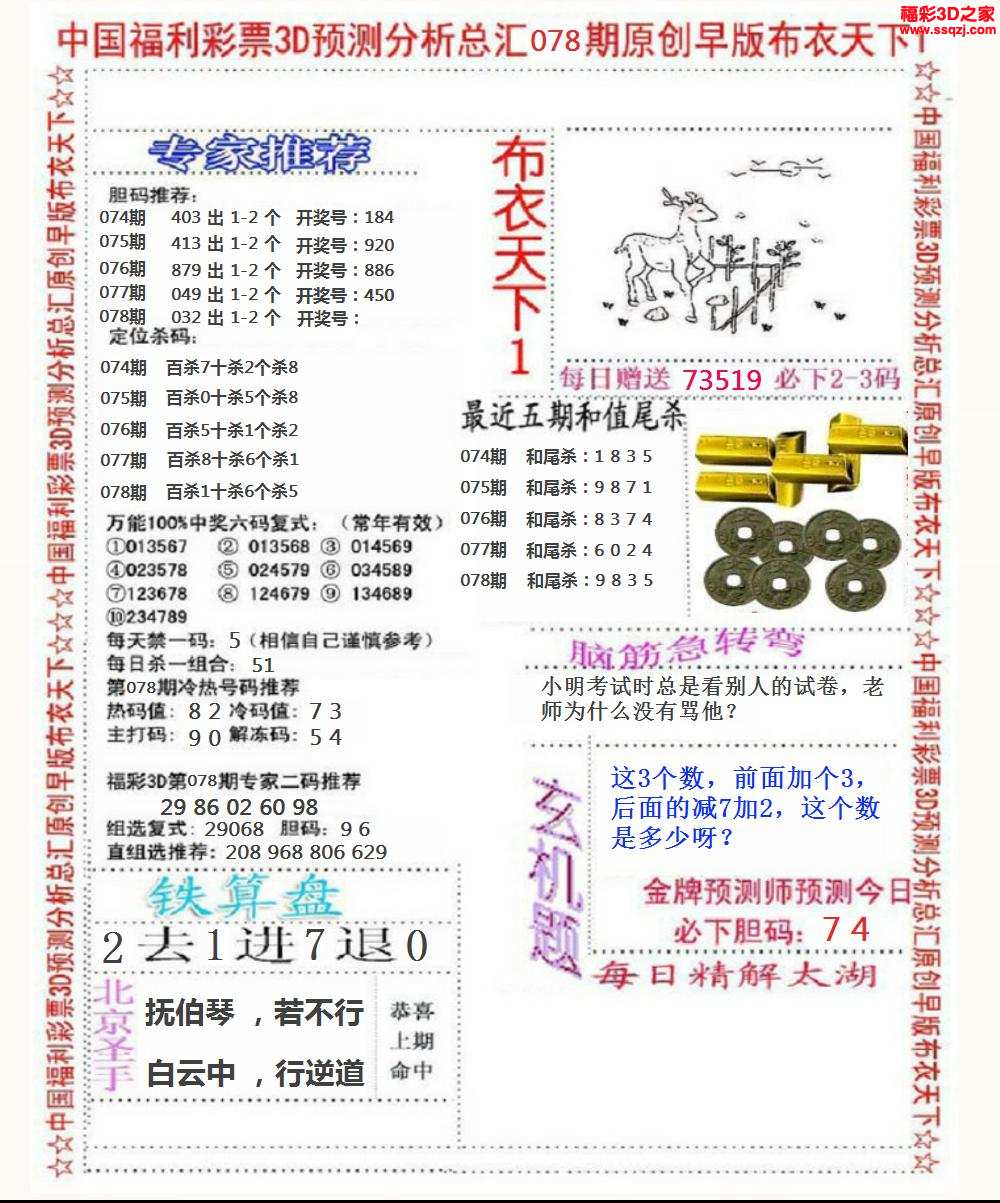 福彩3D之家
www.ssqzj.com
中国福利彩票3D预测分析总汇078期原创早版布衣天下1
☆☆中国福利彩票3D预测分析总汇原创早版布衣天下☆☆中国福利彩票3D预测分析总汇原创早版布衣天下☆☆
专家推荐
胆码推荐:
074期 403 出 1-2 个 开奖号：184
075期 413 出 1-2 个 开奖号：920
076期 879 出 1-2 个 开奖号：886
077期 049 出 1-2 个 开奖号：450
078期 032 出 1-2 个 开奖号：
定位杀码:
074期 百杀7十杀2个杀8
075期 百杀0十杀5个杀8
076期 百杀5十杀1个杀2
077期 百杀8十杀6个杀1
078期 百杀1十杀6个杀5
万能100%中奖六码复式：（常年有效）
①013567 ② 013568 ③ 014569
④023578 ⑤ 024579 ⑥ 034589
⑦123678 ⑧ 124679 ⑨ 134689
⑩234789
每天禁一码：5（相信自己谨慎参考）
每日杀一组合：51
第078期冷热号码推荐
热码值：8 2 冷码值：7 3
主打码：9 0 解冻码：5 4
福彩3D第078期专家二码推荐
29 86 02 60 98
组选复式：29068 胆码：9 6
直组选推荐：208 968 806 629
铁算盘
2去1进7退0
北京圣手
抚伯琴 ，若不行
白云中 ，行逆道
恭喜
上期
命中
布衣天下1
每日赠送 73519 必下2-3码
最近五期和值尾杀
074期 和尾杀：1 8 3 5
075期 和尾杀：9 8 7 1
076期 和尾杀：8 3 7 4
077期 和尾杀：6 0 2 4
078期 和尾杀：9 8 3 5
脑筋急转弯
小明考试时总是看别人的试卷，老
师为什么没有骂他？
玄机题
这3个数，前面加个3，
后面的减7加2，这个数
是多少呀？
金牌预测师预测今日
必下胆码：7 4
每日精解太湖
☆☆中国福利彩票3D预测分析总汇原创早版布衣天下☆☆中国福利彩票3D预测分析总汇原创早版布衣天下☆☆